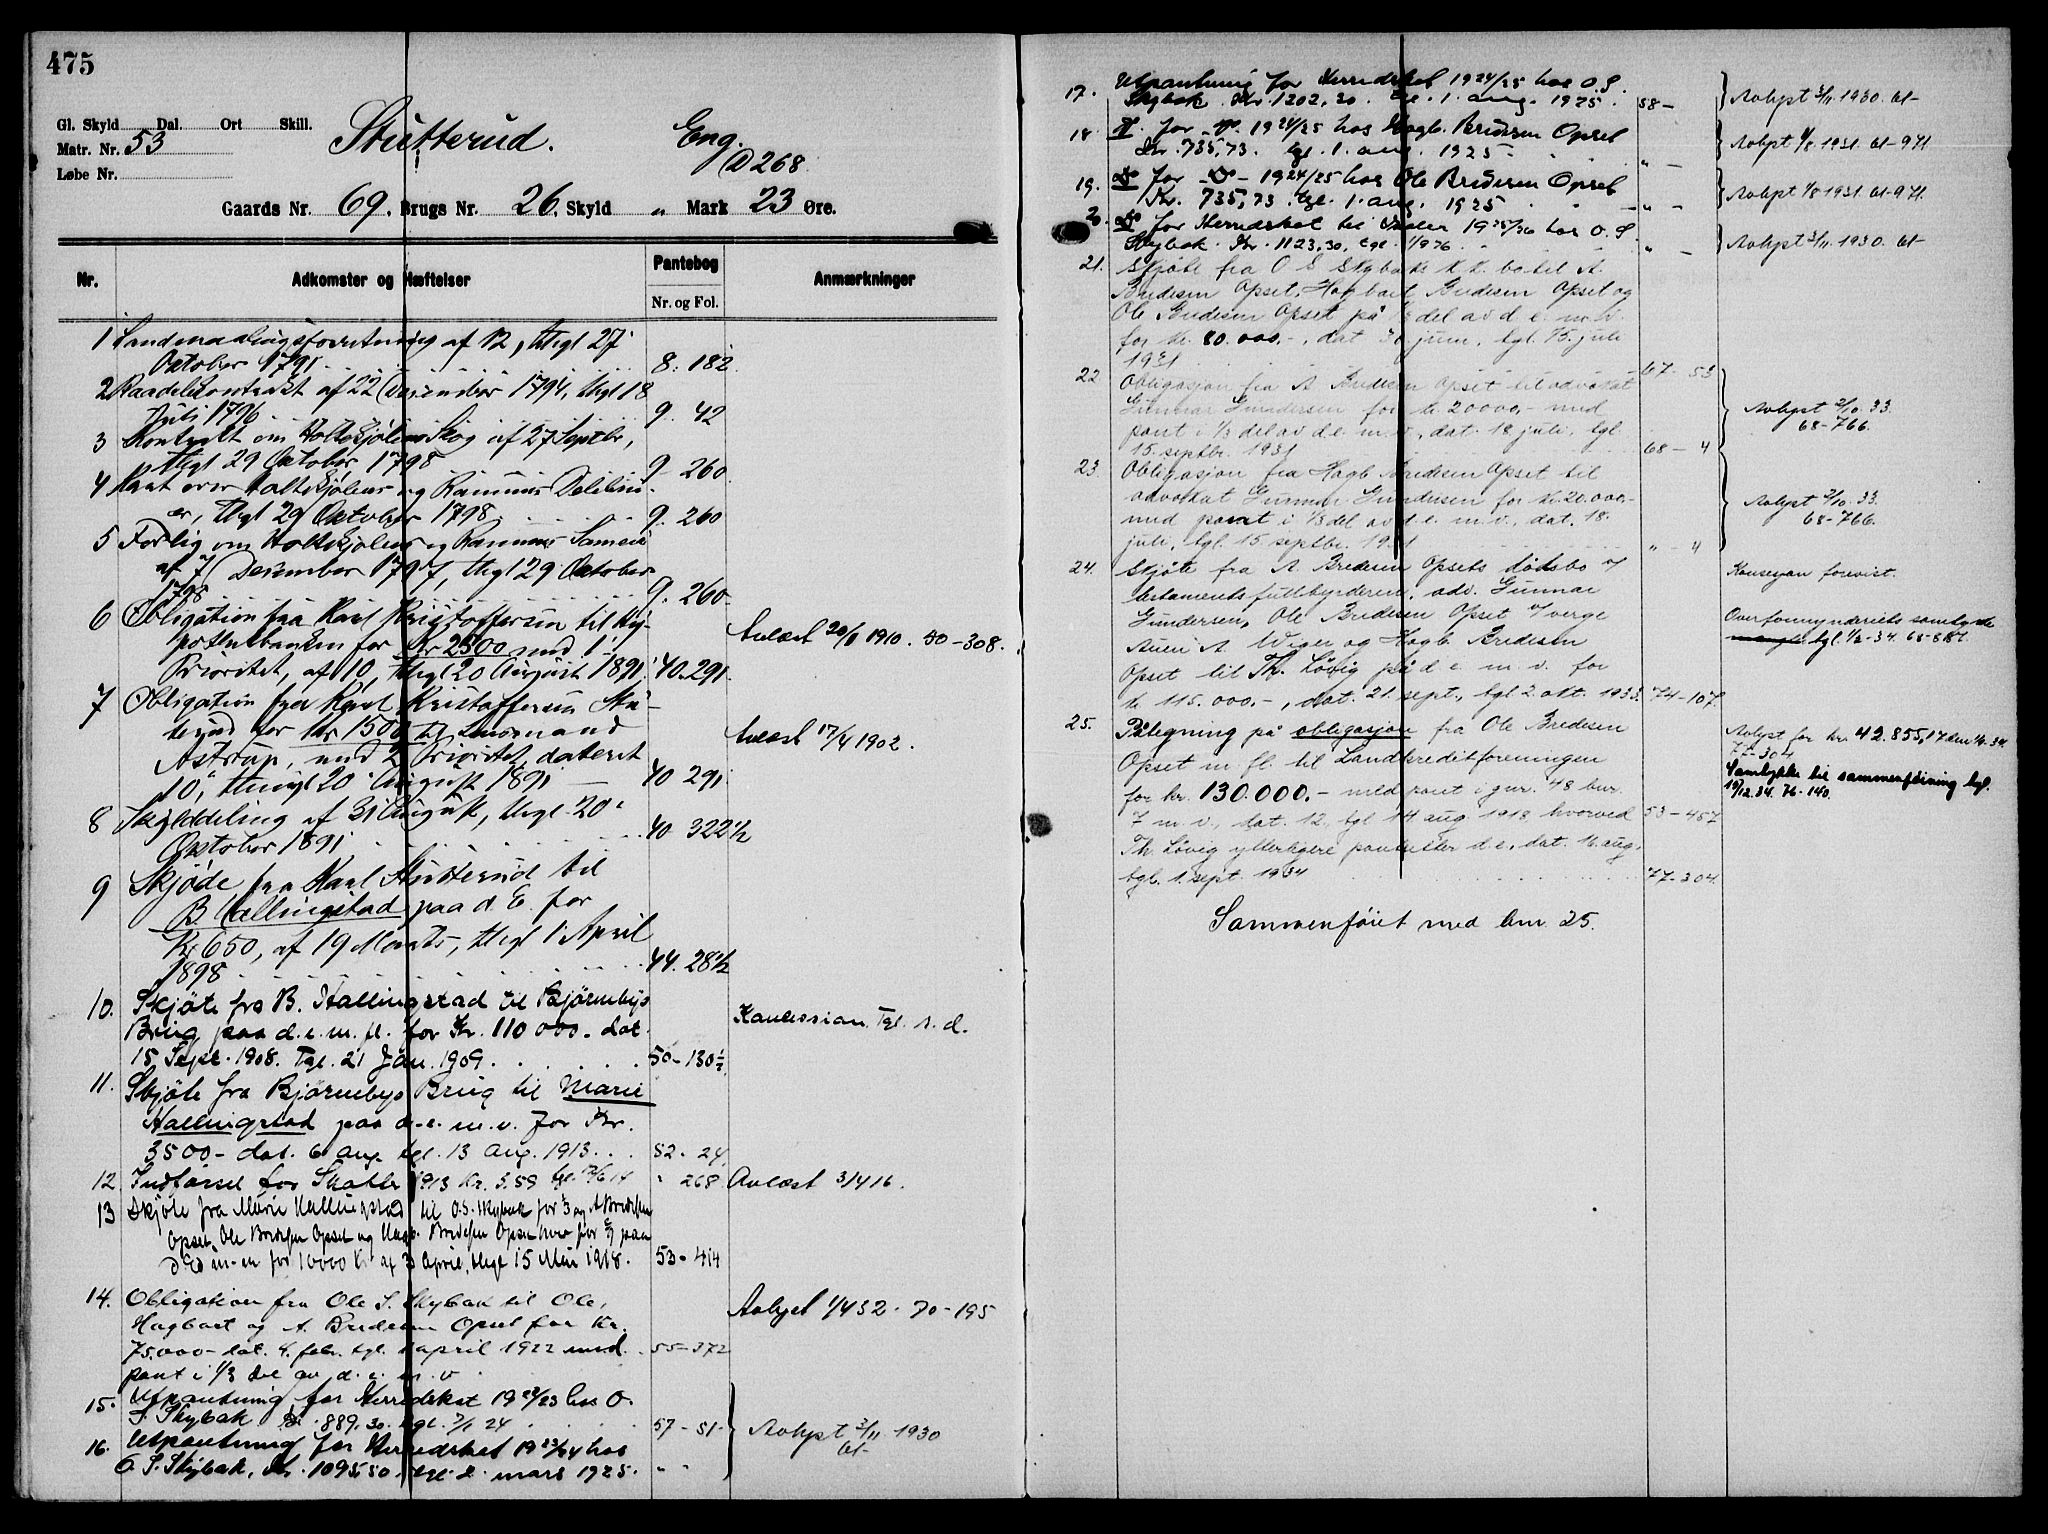 475
Gl. Skyld Dal. Ort Skill.
Matr. Nr. 53
Løbe Nr.
Stutterud. Eng.
D 268
Gaards Nr. 69. Brugs Nr. 26. Skyld „ Mark 23 Øre.
Nr. Adkomster og Hæftelser Pantebog Anmærkninger
Nr. og Fol.
1 af 12, thgl 27
Oktober 1791 8. 182
2 Raadelskontrakt af 22 December 1794, thgl 18
Juli 1796 9. 42
3 Kontrakt om Holtskjølens Skog af 27 Septbr,
thgl 29 Oktober 1798 9. 260
4 over Holtskjølens og
er, thgl 29 Oktober 1798 9. 260
5 Forlig om Holtskjølens og
af 7 December 1797, thgl 29 Oktober
1798 9. 260
6 Obligation fra Karl Kristoffersen til Hy-
pothekbanken for Kr 2500 med 1'
Prioritet, af 10, thgl 20 August 1891. 40. 291 Avlæst 1910. 50-308.
7 Obligation fra Karl Kristoffersen Stu-
terud for Kr 1500 til Lensmand
Astrup, med 2 Prioritet, dateret
10, thingl 20 August 1891 40 291 Avlæst 17/4 1902.
8 Skylddeling af 31 August, thgl 20
Oktober 1891 40 322½
9 Skjøde fra Karl Stutterud til
B. Hallingstad paa d. E. for
Kr 650, af 19 Marts, thgl 1 April
1898 44. 28½
10. Skjøte fra B. Hallingstad til Bjørnebys
Brug paa d. e. m. fl. for Kr. 110 000. dat.
15 Sept. 1908. Tgl. 21 Jan. 1909. 50-130½ Konsession Tgl. s. d.
11. Skjøte fra Bjørnebys Brug til Marie
Hallingstad paa d. e. m. v. for Kr.
3500- dat. 6 aug. tgl. 13 aug. 1913. 52. 24
12 for Skatter 1913 Kr. 5.59 „ 268 Avlæst 3/4 16.
13 Skjøte fra Marie Hallingstad til O. S. Skybak for ⅓ og A Bredesen
Opset, Ole Bredesen Opset og Hagb. Bredesen Opset hver for 2/9 paa
for 10000 Kr af April, thgl 15 Mai 1918. 53-414
14. Obligation fra Ole S. Skybak til Ole,
Hagbart og A. Bredesen Opset for Kr.
75.000- dat. 4. febr. tgl. april 1922 med 55-372 Avlyst 1/4 32. 70-195
pant i 1/3 del av d. e. m. v.
15. Utpantning for Herredskat 1922/23 hos O.
S. Skybak Kr. 889.30. tgl. 7/1 24 57-51- Avlyst 3/11 1930
61-
16. Utpantning for Herredskat 1923/24 hos
O. S. Skybak, Kr. 1095.50, tgl. 2. mars 1925. „ „
17. Utpantning for Herredskat 1924/25 hos O. S.
Skybak Kr. 1202.30. tgl. 1. aug. 1925. 58- Avlyst 3/11 1930. 61-
18. for 1924/25 hos Hagb. Bredesen Opset
Kr. 735,73. tgl. 1. aug. 1925. „ - Avlyst 1/8 1931. 61-971
19. for 1924/25 hos Ole Bredesen Opset
Kr. 735,73. tgl. 1. aug. 1925 „ - Avlyst 1/8 1931. 61-971.
20. for Herredskat til 1925/26 hos O. S
Skybak. Kr. 1123,30, tgl. „ - Avlyst 3/11 1930. 61-
21. Skjøte fra O S Skybaks k. k. bo til A.
Bredesen Opset, Hagbart Bredesen Opset og
Ole Bredesen Opset på ⅓ del av d. e. m. v.
for kr. 80.000.-, dat 30 juni, tgl. 15. juli
1931 67-53
22 Obligasjon fra A Bredesen Opset til advokat
Gunnar Gundersen for kr. 20000,- med
pant i 1/3 del av d. e. m. v., dat. 18 juli, tgl.
15. septbr. 1931 68-4 Avlyst 2/10. 33.
68-766.
23. Obligasjon fra Hagb. Bredesen Opset til
advokat Gunnar Gundersen for kr. 20.000.-
med pant i 1/3 del av d. e. m. v., dat. 18.
juli, tgl. 15. septbr. 1931 „ - 4 Avlyst 2/10. 33.
68-766.
24. Skjøte fra A Bredesen Opsets dødsbo v/ Konsesjon forevist.
testamentsfullbyrderen, adv. Gunnar
Gundersen, Ole Bredesen Opset v/verge Overformynderiets samtykke
A Wiger og Hagb. Bredesen mangler tgl. 1/2-34. 68-881.
Opset til Th. Løvig på d. e. m. v. for
kr 115.000.-, dat. 21. sept., tgl 2. okt. 1933. 74-107
25. Påtegning på obligasjon fra Ole Bredesen Avlyst for kr 42.855,17
Opset m. fl. til Landkreditforeningen 77-304
for kr. 130.000.- med pant i gnr. 48 bnr. Samtykke til sammenføining tgl.
7 m. v., dat. 12., tgl 14 aug. 1918 hvorved 53-457 19/12.34. 76-140.
Th. Løvig ytterligere pantsetter d. e., dat. 16 aug.
tgl. 1. sept. 1934 77-304.
Sammenføiet med bnr. 25.